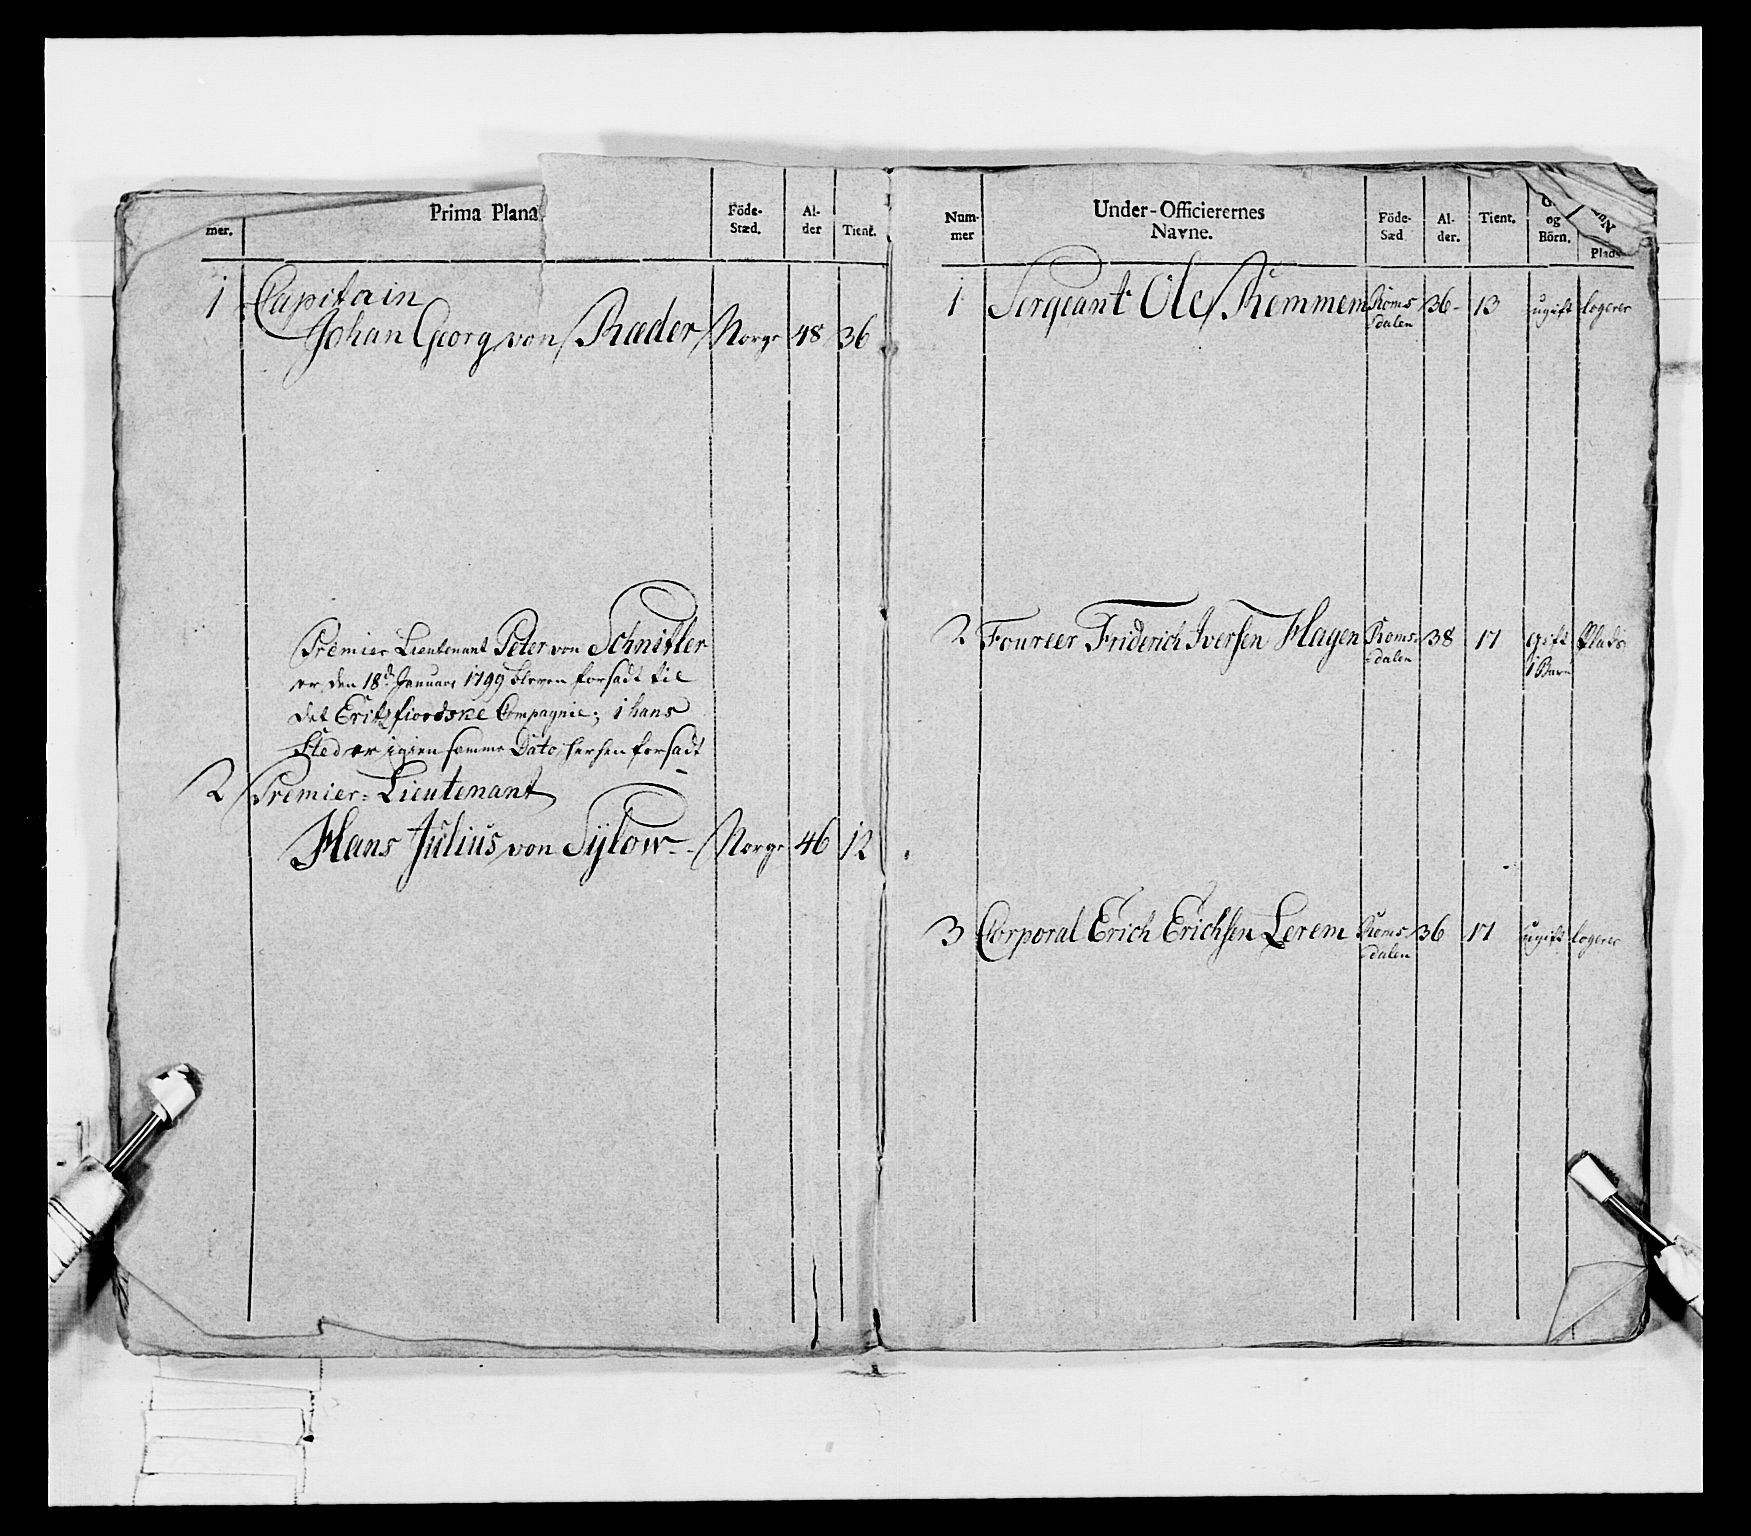 mer.
Prima Plana
Föde-
Stæd.
Al-
der
Tient.
1 Capitain
Johan Georg von Ræder Norge 48 36
Premier Lieutenant Peter von Schnitler
er den 18d Januari 1799 bleven forsadt til
det Eritzfiordske Compagnie; i hans
Sted er igien samme Dato hersen forsadt
2 Premier-Lieutenant
Hans Julius von Sylow - Norge 46 12
Num-
mer
Under-Officierernes
Navne.
Föde-
Sæd
Al-
der.
Tient.
og
Börn.
Plads
1 Sergeant Ole Remmem Roms 36 - 13 ugift logerer
dalen
2 Foureer Friderich Iversen Hagen Roms- 38 17 gift Plads
dalen 1 Barn
3 Corporal Erich Erichsen Lerem Roms 36 17 ugift logerer
dalen